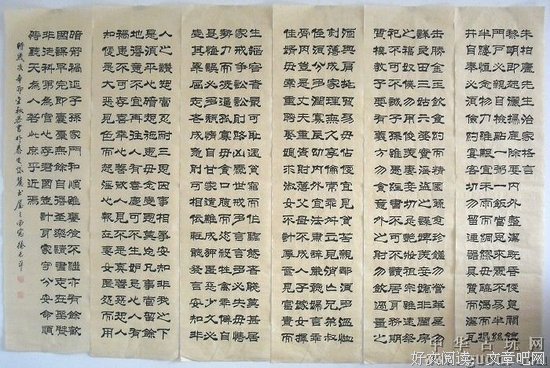 朱柏廬先生治家格言
黎明即起灑掃庭除要內外整潔既昏便息關鎖
門戶必親自檢點一粥一飯當思來處不易半絲
半縷恆念物力維艱宜未雨而綢繆毋臨渴而掘
井自奉必須儉約宴客切勿留連器具質而潔瓦
缶勝金玉飲食約而精園蔬愈珍饈勿營華屋勿
謀良田三姑六婆實淫盜之媒婢美妾嬌非閨房
之福奴僕勿用俊美妻妾切忌豔妝祖宗雖遠祭
祀不可不誠子孫雖愚經書不可不讀居身務期
質樸教子要有義方勿貪意外之財勿飲過量之
酒與肩挑貿易毋佔便宜見窮苦親鄰須加溫恤
刻薄成家理無久享倫常乖舛立見消亡兄弟叔
侄須分多潤寡長幼內外宜法肅辭嚴聽婦言乖
骨肉豈是丈夫重資財薄父母不成人子嫁女擇
佳婿毋索重聘娶媳求淑女勿計厚奩見富貴而
生諂容者最可恥遇貧窮而作驕態者賤莫甚居
家戒爭訟訟則終凶處世戒多言言多必失毋恃
勢力而凌逼孤寡毋貪口腹而恣殺生禽乖僻自
是悔誤必多頹惰自甘家道難成狎昵惡少久必
受其累屈志老成急則可相依輕聽發言安知非
人之譖訴當忍耐三思因事相爭安知非我之不
是須平心暗想施惠勿念受恩莫忘凡事當留餘
地得意不宜再往人有喜慶不可生妒忌心人有
禍患不可生喜幸心善欲人見不是真善惡恐人
知便是大惡見色而起淫心報在妻女匿怨而用
暗箭禍延子孫家門和順雖饔飧不繼亦有餘歡
國課早完即囊橐無餘自得至樂讀書志在聖賢
非徒科第為官心存君國豈計身家守分安命順
時聽天為人若此庶乎近焉
時歲次辛卯
中华古玩网
好文阅读:文章吧网